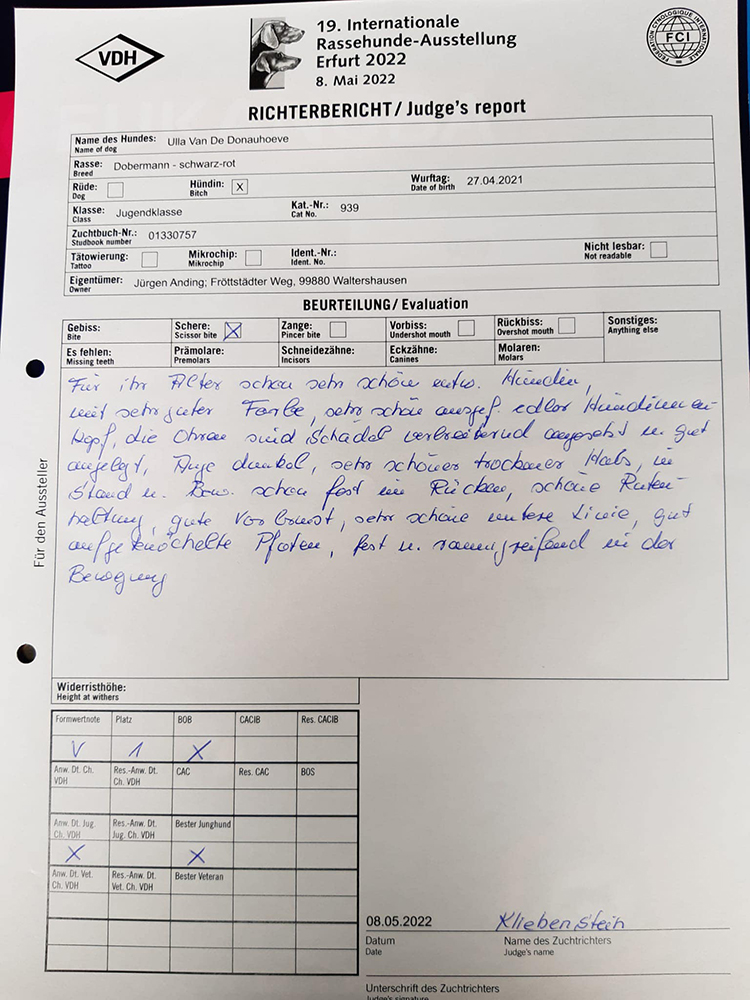 VDH
19. Internationale
Rassehunde-Ausstellung
Erfurt 2022
8. Mai 2022
FEDERATION CYNOLOGIQUE INTERNATIONALE
FCI
RICHTERBERICHT / Judge's report
Name des Hundes: Ulla Van De Donauhoeve
Name of dog
Rasse: Dobermann - schwarz-rot
Breed
Rüde: Hündin: X Wurftag: 27.04.2021
Dog Bitch Date of birth
Klasse: Jugendklasse Kat.-Nr.: 939
Class Cat No.
Zuchtbuch-Nr.: 01330757
Studbook number
Tätowierung: Mikrochip: Ident.-Nr.: Nicht lesbar:
Tattoo Mikrochip Ident. No. Not readable
Eigentümer: Jürgen Anding; Fröttstädter Weg, 99880 Waltershausen
Owner
BEURTEILUNG / Evaluation
Gebiss: Schere: X Zange: Vorbiss: Rückbiss: Sonstiges:
Bite Scissor bite Pincer bite Undershot mouth Overshot mouth Anything else
Es fehlen: Prämolare: Schneidezähne: Eckzähne: Molaren:
Missing teeth Premolars Incisors Canines Molars
Für ihr Alter schon sehr schön entw. Hündin,
mit sehr guter Farbe, sehr schön ausgef. edler Hündinnen-
kopf, die Ohren sind Schädel verbreiternd angesetzt u. gut
angelegt, Auge dunkel, sehr schöner trockener Hals, im
Stand u. Bew. schon fest im Rücken, schöne Ruten-
haltung, gute Vorbrust, sehr schöne untere Linie, gut
aufgeknöchelte Pfoten, fest u. raumgreifend in der
Bewegung
Für den Aussteller
Widerristhöhe:
Height at withers
Formwertnote Platz BOB CACIB Res. CACIB
V 1 X
Anw. Dt. Ch. Res.-Anw. Dt. CAC Res. CAC BOS
VDH Ch. VDH
Anw. Dt. Jug. Res.-Anw. Dt. Bester Junghund
Ch. VDH Jug. Ch. VDH
X X
Anw. Dt. Vet. Res.-Anw. Dt. Bester Veteran
Ch. VDH Vet. Ch. VDH
08.05.2022 Kliebenstein
Datum Name des Zuchtrichters
Date Judge's name
Unterschrift des Zuchtrichters
Judge's signature